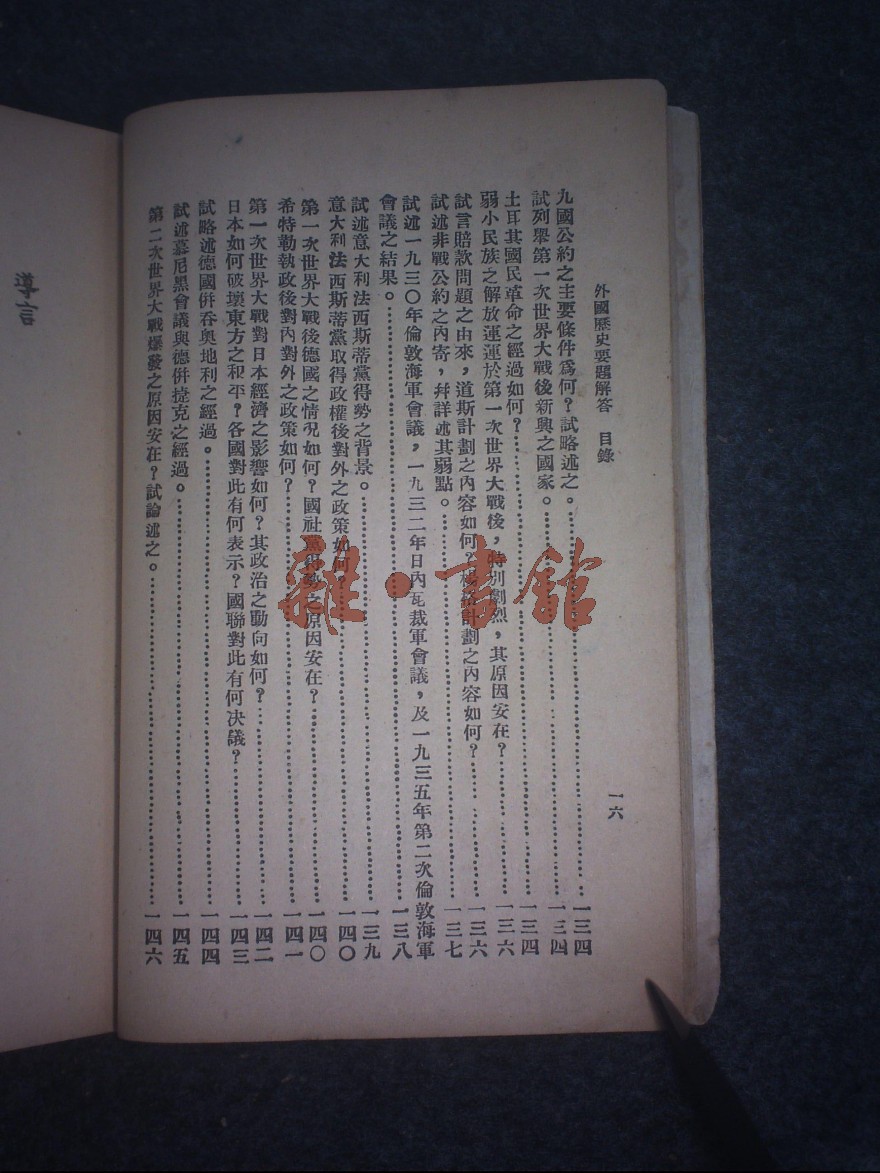 外國歷史要題解答 目錄
一六
九國公約之主要條件爲何？試略述之。…………一三四
試列舉第一次世界大戰後新興之國家。…………一三四
土耳其國民革命之經過如何？…………一三四
弱小民族之解放運運於第一次世界大戰後，特別劇烈，其原因安在？…………一三六
試言賠款問題之由來，道斯計劃之內容如何？楊格計劃之內容如何？…………一三六
試述非戰公約之內寄，幷詳述其弱點。…………一三七
試述一九三〇年倫敦海軍會議，一九三二年日內瓦裁軍會議，及一九三五年第二次倫敦海軍
會議之結果。…………一三八
試述意大利法西斯蒂黨得勢之背景。…………一三九
意大利法西斯蒂黨取得政權後對外之政策如何？…………一四〇
第一次世界大戰後德國之情況如何？國社黨得勢之原因安在？…………一四〇
希特勒執政後對內對外之政策如何？…………一四一
第一次世界大戰對日本經濟之影響如何？其政治之動向如何？…………一四二
日本如何破壞東方之和平？各國對此有何表示？國聯對此有何決議？…………一四三
試略述德國併吞奧地利之經過。…………一四四
試述慕尼黑會議與德併捷克之經過。…………一四五
第二次世界大戰爆發之原因安在？試論述之。…………一四六
導言
雜·書館